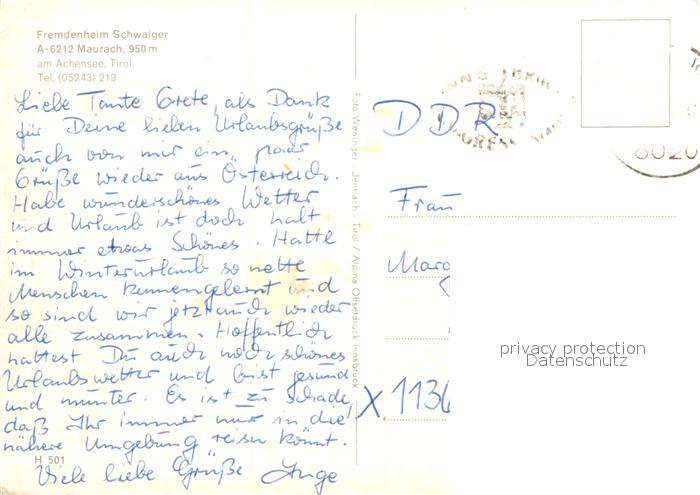 Fremdenheim Schwaiger
A-6212 Maurach, 950 m
am Achensee, Tirol,
Tel. (05243) 213
Liebe Tante Grete, als Dank
für Deine lieben Urlaubsgrüße
auch von mir ein paar
Grüße wieder aus Österreich.
Habe wunderschönes Wetter
und Urlaub ist doch halt
immer etwas Schönes. Hatte
im Winterurlaub so nette
Menschen kennengelernt und
so sind wir jetzt auch wieder
alle zusammen. Hoffentlich
hattest Du auch noch schönes
Urlaubswetter und bist gesund
und munter. Es ist zu schade,
daß Ihr immer nur in die
nähere Umgebung reisen könnt.
H 501
Viele liebe Grüße Inge
Foto Weninger, Jenbach, Tirol / Alpina Offsetdruck Innsbruck
DDR
Frau
Marg
X 1136
6020
privacy protection
Datenschutz